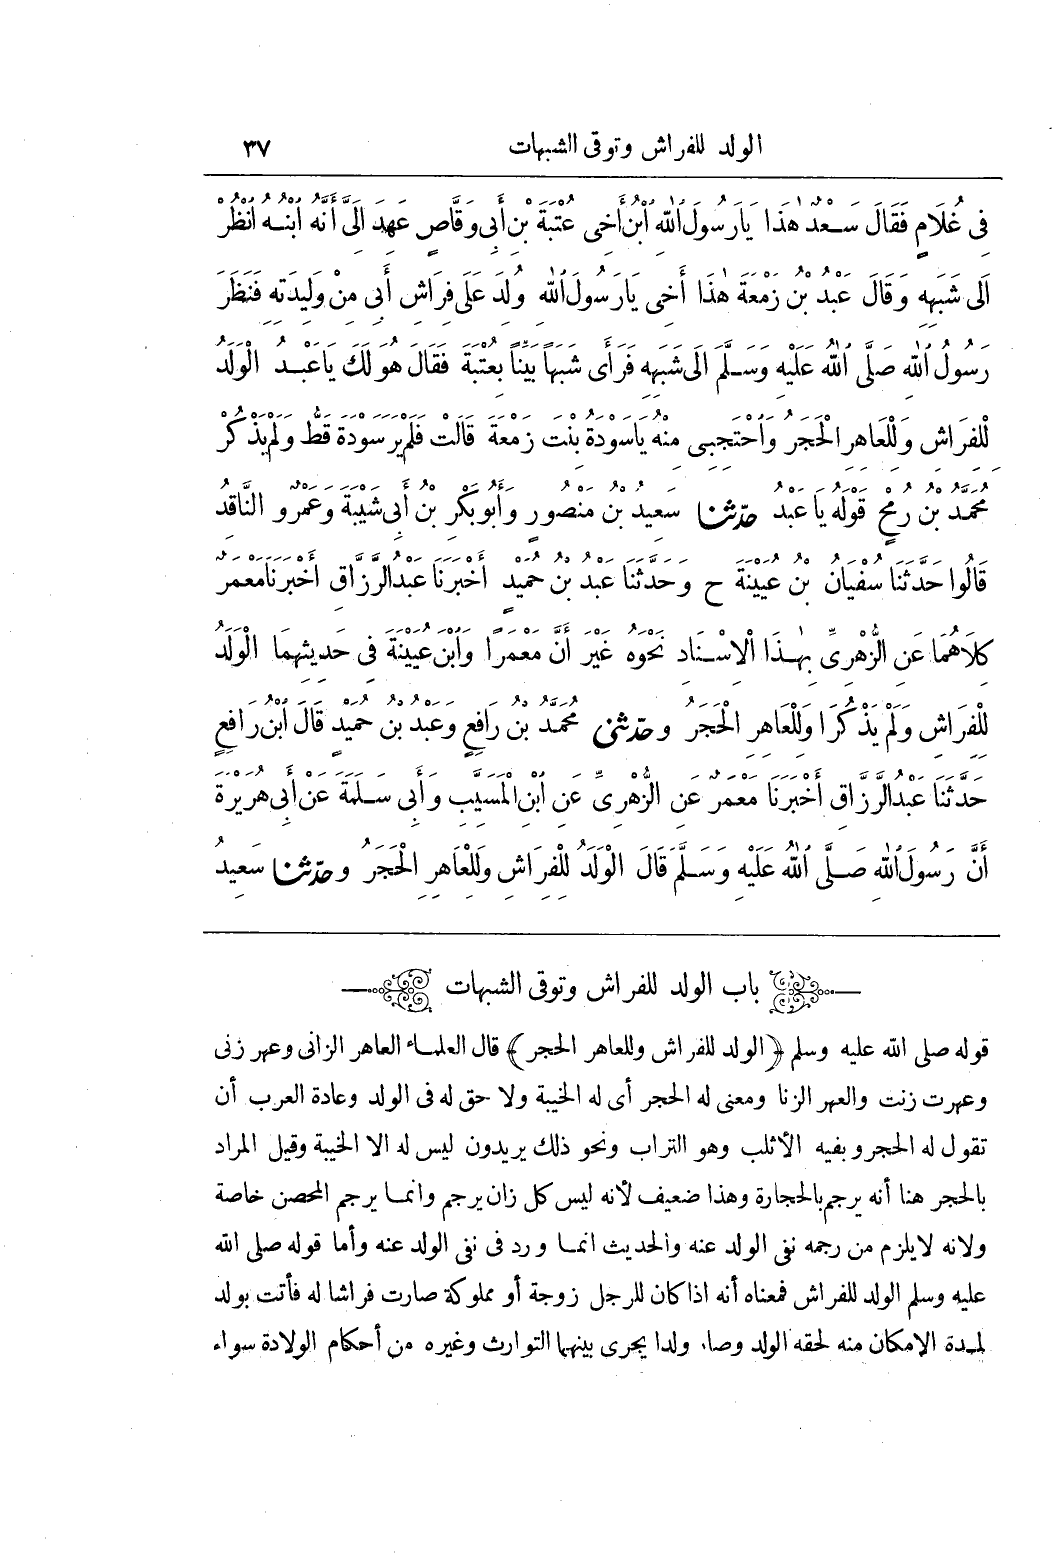 الولد للفراش وتوقى الشبهات ٣٧
فِى غُلَامٍ فَقَالَ سَعْدٌ هٰذَا يَارَسُولَ اللهِ ابْنُ أَخِى عُتْبَةَ بْنِ أَبِى وَقَّاصٍ عَهِدَ إِلَىَّ أَنَّهُ ابْنُهُ انْظُرْ
الَى شَبَهِهِ وَقَالَ عَبْدُ بْنُ زَمْعَةَ هٰذَا أَخِى يَارَسُولَ اللهِ وُلِدَ عَلَى فِرَاشِ أَبِى مِنْ وَلِيدَتِهِ فَنَظَرَ
رَسُولُ اللهِ صَلَّى اللهُ عَلَيْهِ وَسَلَّمَ الَى شَبَهِهِ فَرَأَى شَبَهًا بَيِّنًا بِعُتْبَةَ فَقَالَ هُوَ لَكَ يَاعَبْدُ الْوَلَدُ
لِلْفِرَاشِ وَلِلْعَاهِرِ الْحَجَرُ وَاحْتَجِبِى مِنْهُ يَاسَوْدَةُ بِنْتَ زَمْعَةَ قَالَتْ فَلَمْ يَرَ سَوْدَةَ قَطُّ وَلَمْ يَذْكُرْ
مُحَمَّدُ بْنُ رُمْحٍ قَوْلَهُ يَا عَبْدُ حَدَّثَنَا سَعِيدُ بْنُ مَنْصُورٍ وَأَبُو بَكْرِ بْنُ أَبِى شَيْبَةَ وَعَمْرٌو النَّاقِدُ
قَالُوا حَدَّثَنَا سُفْيَانُ بْنُ عُيَيْنَةَ ح وَحَدَّثَنَا عَبْدُ بْنُ حُمَيْدٍ أَخْبَرَنَا عَبْدُ الرَّزَّاقِ أَخْبَرَنَا مَعْمَرٌ
كِلَاهُمَا عَنِ الزُّهْرِىِّ بِهٰذَا الْإِسْنَادِ نَحْوَهُ غَيْرَ أَنَّ مَعْمَرًا وَابْنَ عُيَيْنَةَ فِى حَدِيثِهِمَا الْوَلَدُ
لِلْفِرَاشِ وَلَمْ يَذْكُرَا وَلِلْعَاهِرِ الْحَجَرُ وحَدَّثَنِى مُحَمَّدُ بْنُ رَافِعٍ وَعَبْدُ بْنُ حُمَيْدٍ قَالَ ابْنُ رَافِعٍ
حَدَّثَنَا عَبْدُ الرَّزَّاقِ أَخْبَرَنَا مَعْمَرٌ عَنِ الزُّهْرِىِّ عَنِ ابْنِ الْمُسَيَّبِ وَأَبِى سَلَمَةَ عَنْ أَبِى هُرَيْرَةَ
أَنَّ رَسُولَ اللهِ صَلَّى اللهُ عَلَيْهِ وَسَلَّمَ قَالَ الْوَلَدُ لِلْفِرَاشِ وَلِلْعَاهِرِ الْحَجَرُ وحَدَّثَنَا سَعِيدُ
باب الولد للفراش وتوقى الشبهات
قوله صلى الله عليه وسلم ﴿الولد للفراش وللعاهر الحجر﴾ قال العلماء العاهر الزانى وعهر زنى
وعهرت زنت والعهر الزنا ومعنى له الحجر أى له الخيبة ولا حق له فى الولد وعادة العرب أن
تقول له الحجر وبفيه الأثلب وهو التراب ونحو ذلك يريدون ليس له الا الخيبة وقيل المراد
بالحجر هنا أنه يرجم بالحجارة وهذا ضعيف لأنه ليس كل زان يرجم وانما يرجم المحصن خاصة
ولانه لا يلزم من رجمه نفى الولد عنه والحديث انما ورد فى نفى الولد عنه وأما قوله صلى الله
عليه وسلم الولد للفراش فمعناه أنه اذا كان للرجل زوجة أو مملوكة صارت فراشا له فأتت بولد
لمدة الامكان منه لحقه الولد وصار ولدا يجرى بينهما التوارث وغيره من أحكام الولادة سواء